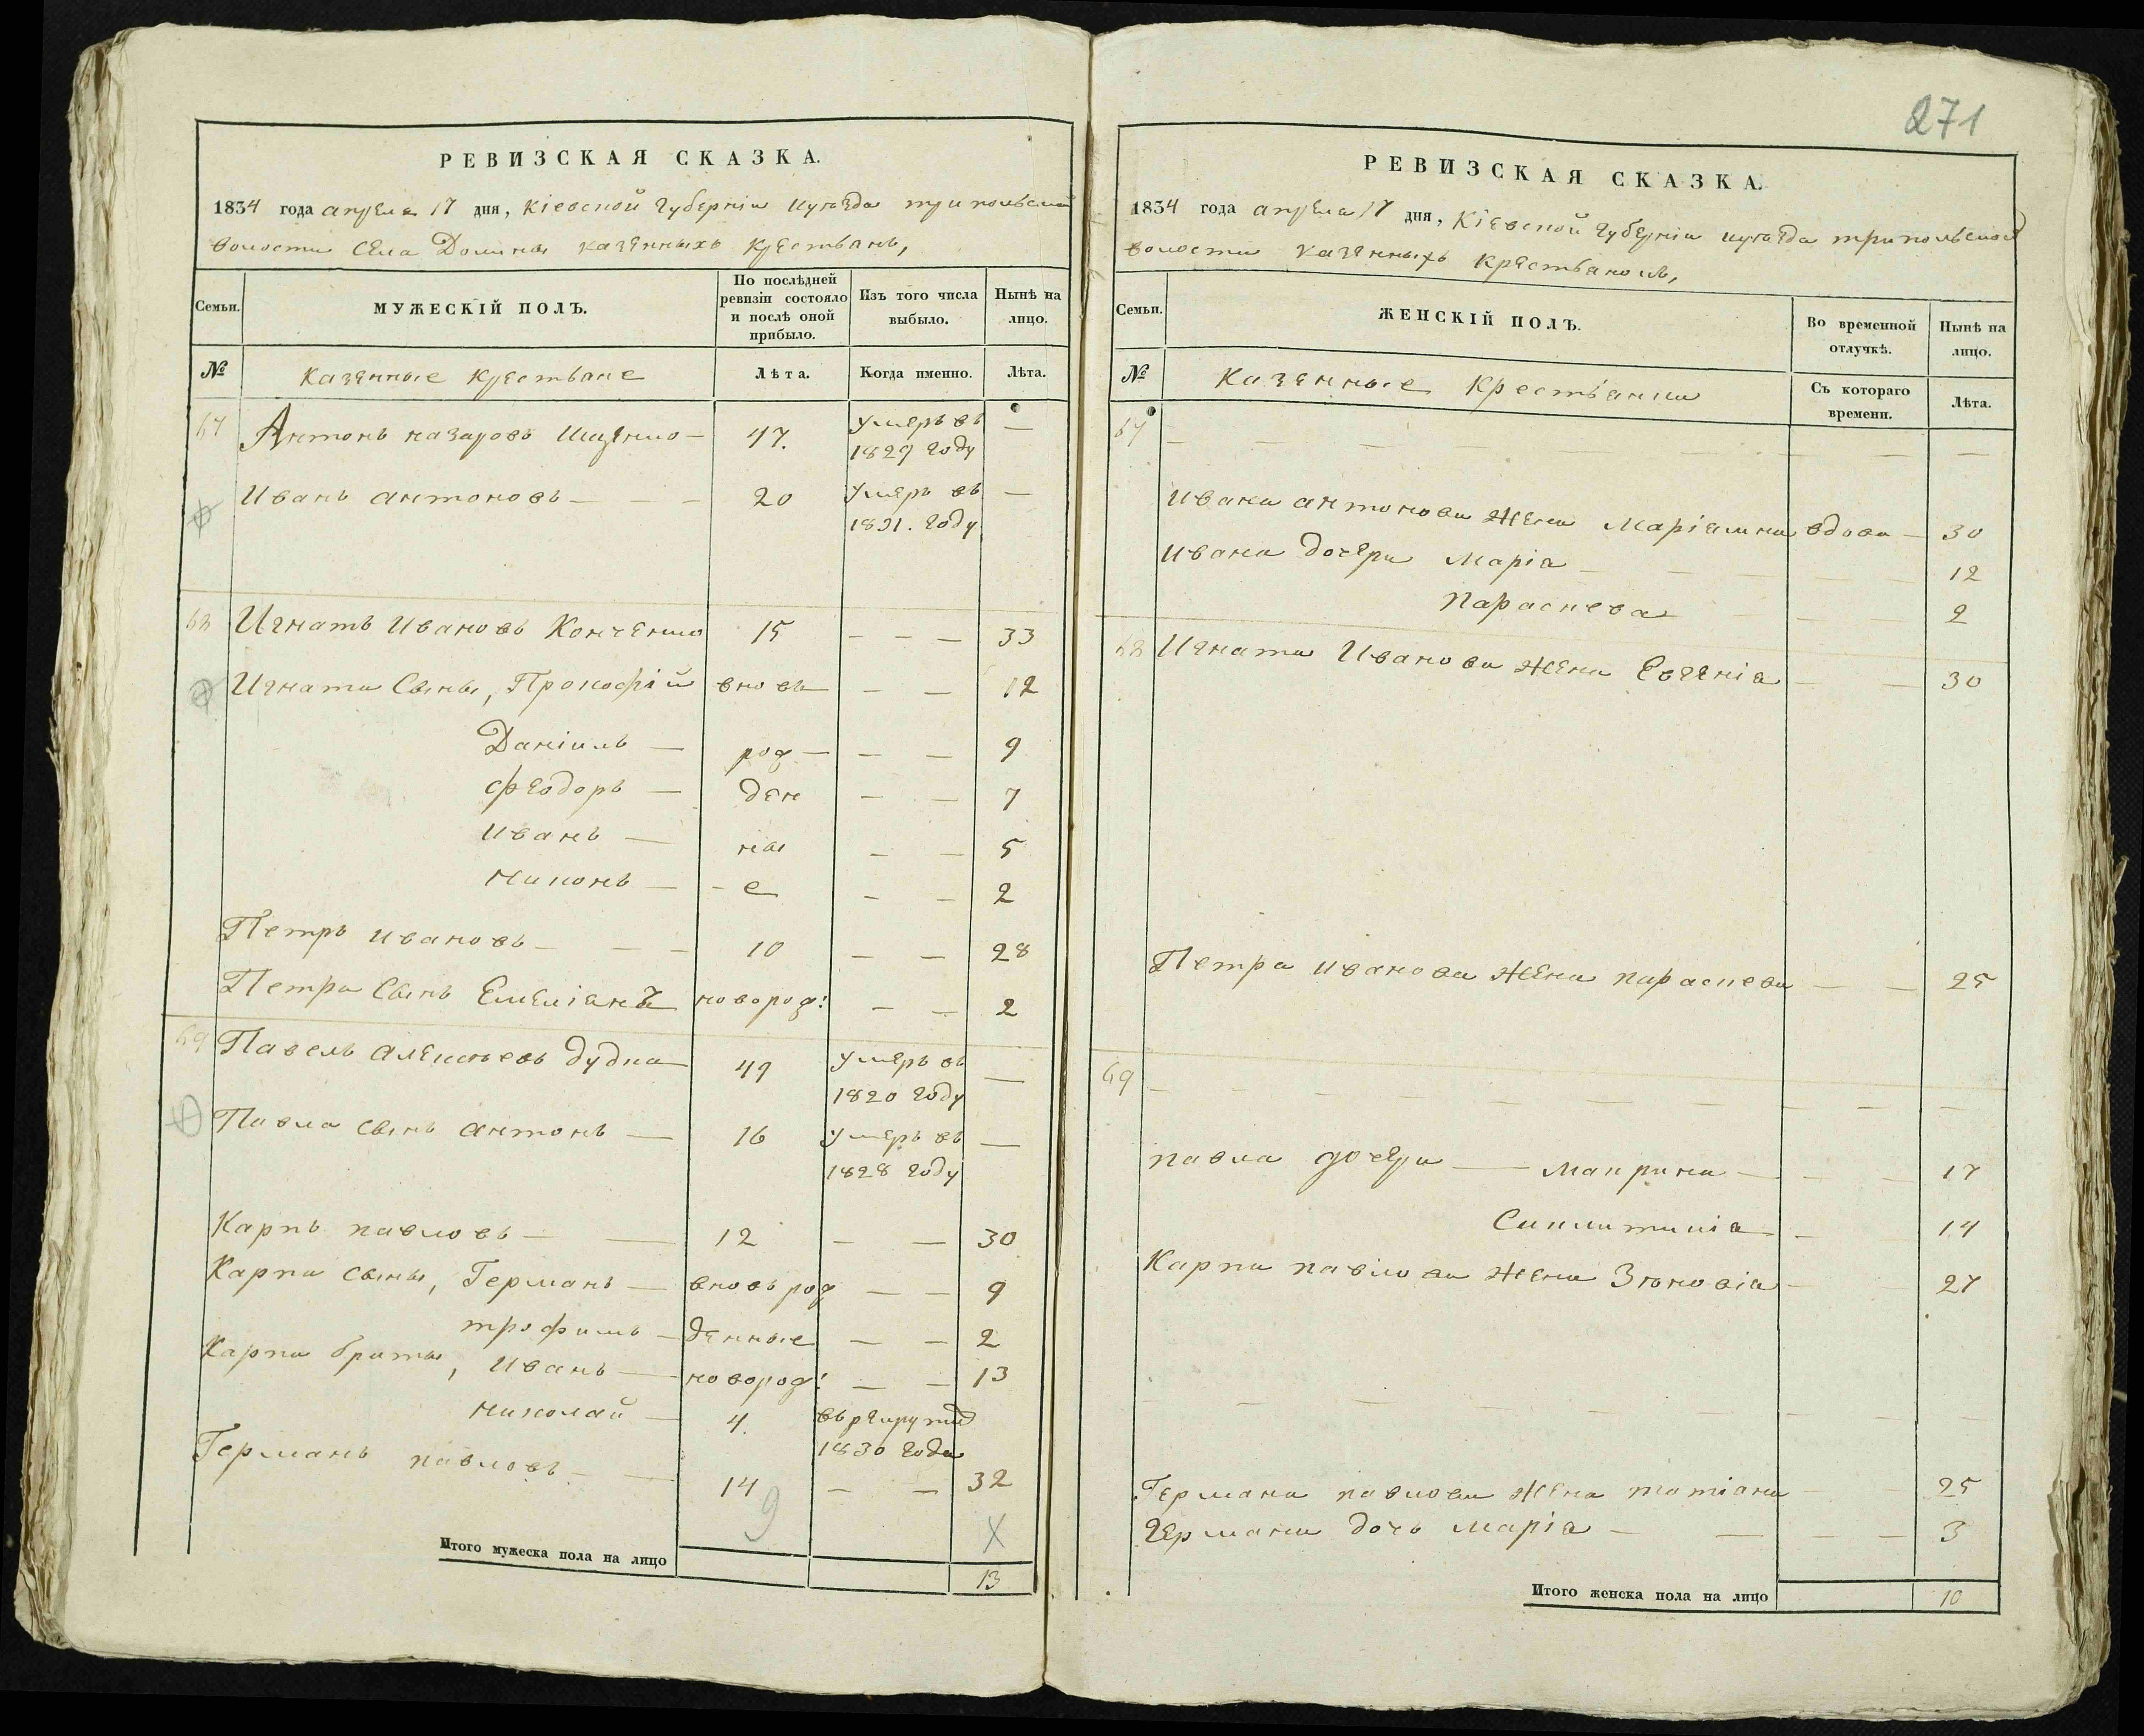 271
РЕВИЗСКАЯ СКАЗКА.
1834 года апреля 17 дня, Кіевской губерніи и уезда трипольской
волости села Долины казенныхъ крестьянъ,
Семьи.
МУЖЕСКІЙ ПОЛЪ.
По послѣдней ревизіи состояло и послѣ оной прибыло.
Изъ того числа выбыло.
Нынѣ на лицо.
№ казенные крестьяне Лѣта. Когда именно. Лѣта.
67 Антонъ назаровъ Ищенко — 47. умеръ въ 1829 году —
Иванъ антоновъ — — — 20 умеръ въ 1831. году —
68 Игнатъ Ивановъ Конченко 15 — — — 33
Игната сыны, Прокофій вновь — — 12
Даніилъ — рож — — — 9
феодоръ — ден — — 7
иванъ — ны — — 5
никонъ — - е — — 2
Петръ ивановъ — — — 10 — — 28
Петра сынъ Емеліанъ новорож: — — 2
69 Павелъ алексеевъ дудка 49 умеръ въ 1820 году —
Павла сынъ антонъ — 16 умеръ въ 1828 году —
Карпъ павловъ — — 12 — — 30
Карпа сыны, Германъ — вновь рож — — 9
трофимъ — денные — — 2
Карпа браты, иванъ — новорож: — — 13
николай — 4. въ рекруты 1830 года
Германъ павловъ — — 14 — — 32
9 X
Итого мужеска пола на лицо 13
РЕВИЗСКАЯ СКАЗКА.
1834 года апреля 17 дня, Кіевской губерніи и уезда трипольской
волости казенныхъ крестьянокъ,
Семьи.
ЖЕНСКІЙ ПОЛЪ.
Во временной отлучкѣ.
Нынѣ на лицо.
№ казенные крестьянки Съ котораго времени. Лѣта.
67 — — — — — — —
ивана антонова жена Маріамна вдова — 30
ивана дочери Марія — — — — — 12
параскева — — — 2
68 Игната Иванова жена Евгенія — — 30
Петра иванова жена параскева — — 25
69 — — — — — — — — — —
павла дочери — макрина — — — 17
Синклитикія — — 14
Карпа павлова жена Зиновія — — 27
— — — — — — — — — —
Германа павлова жена татіана — 25
германа дочь марія — — — — 3
Итого женска пола на лицо 10